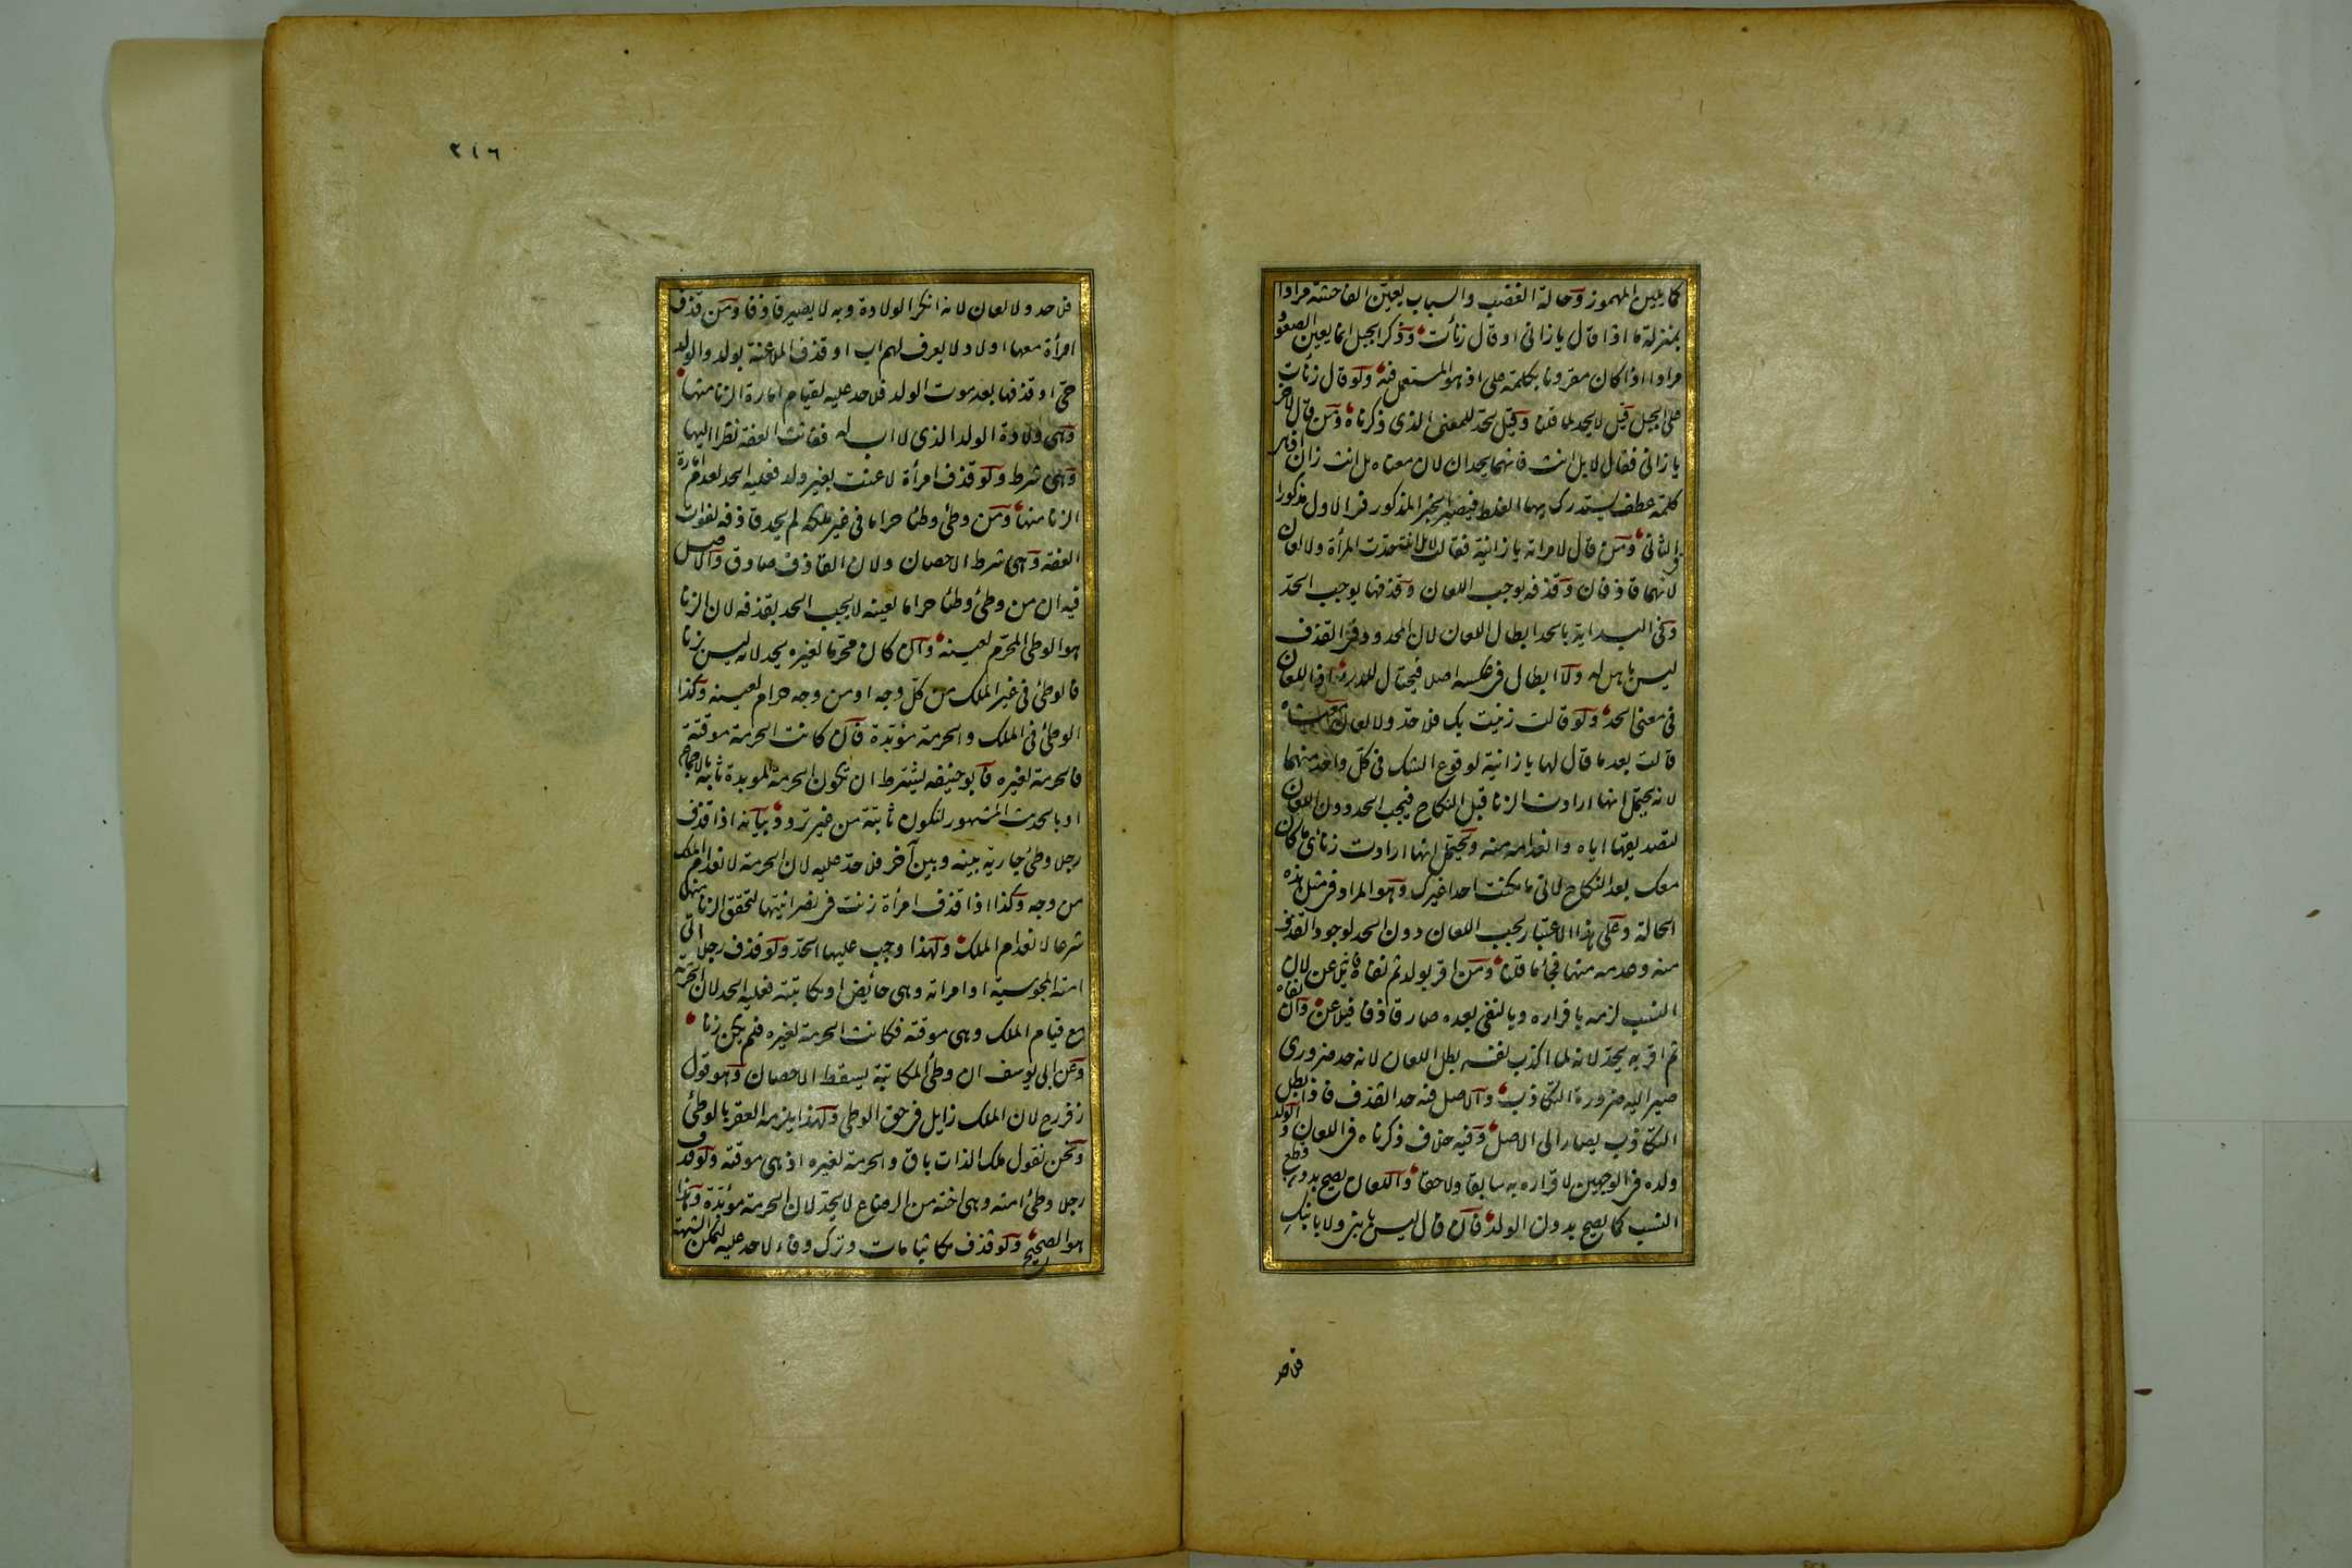 كما يلين المهموز وحالة الغضب والسباب يعين الفاحشة مرادا
بمنزلة ما اذا قال يا زانى او قال زنأت وذكر الجبل انما يعين الصعود
مرادا اذا كان مقرونا بكلمة على اذ هو المستعمل فيه ولو قال زنأت
على الجبل قيل لا يحد لما قلنا وقيل يحد للمعنى الذى ذكرناه ومن قال لآخر
يا زانى فقال لا بل انت فانهما يحدان لان معناه بل انت زان اذ هى
كلمة عطف يستدرك بها الغلط فيصير الخبر المذكور فى الاول مذكورا
فى الثانى ومن قال لامراته يا زانية فقالت لا بل انت حدت المرأة ولا لعان
لانهما قاذفان وقذفه يوجب اللعان وقذفها يوجب الحد
وفى البداية بالحد ابطال اللعان لان المحدود فى القذف
ليس باهل له ولا ابطال فى عكسه اصلا فيحتال للدرء اذ اللعان
فى معنى الحد ولو قالت زنيت بك فلا حد ولا لعان معناه
قالت بعد ما قال لها يا زانية لوقوع الشك فى كل واحد منهما
لانه يحتمل انها ارادت الزنا قبل النكاح فيجب الحد دون اللعان
لتصديقها اياه وانعدامه منه ويحتمل انها ارادت زنائى ما كان
معك بعد النكاح لانى ما مكنت احدا غيرك وهو المراد فى مثل هذه
الحالة وعلى هذا الاعتبار يجب اللعان دون الحد لوجود القذف
منه وعدمه منها فجاء ما قلنا ومن اقر بولد ثم نفاه فانه يلاعن لان
النسب لزمه باقراره وبالنفى بعده صار قاذفا فيلاعن وان نفاه
ثم اقر به يحد لانه لما اكذب نفسه بطل اللعان لانه حد ضرورى
صير اليه ضرورة التكاذب والاصل فيه حد القذف فاذا بطل
التكاذب يصار الى الاصل وفيه خلاف ذكرناه فى اللعان والولد
ولده فى الوجهين لاقراره به سابقا ولاحقا واللعان يصح بدون قطع
النسب كما يصح بدون الولد فان قال ليس بابنى ولا بابنك
فلا حد
٣١٦
فلا حد ولا لعان لانه انكر الولادة وبه لا يصير قاذفا ومن قذف
امرأة معها اولاد لا يعرف لهم اب او قذف الملاعنة بولد والولد
حى او قذفها بعد موت الولد فلا حد عليه لقيام امارة الزنا منها
وهى ولادة الولد الذى لا اب له ففاتت العفة نظرا اليها
وهى شرط ولو قذف امرأة لاعنت بغير ولد فعليه الحد لعدم امارة
الزنا منها ومن وطئ وطئا حراما فى غير ملكه لم يحد قاذفه لفوات
العفة وهى شرط الاحصان ولان القاذف صادق والاصل
فيه ان من وطئ وطئا حراما لعينه لا يجب الحد بقذفه لان الزنا
هو الوطئ المحرم لعينه وان كان محرما لغيره يحد لانه ليس بزنا
فالوطئ فى غير الملك من كل وجه او من وجه حرام لعينه وكذا
الوطئ فى الملك والحرمة مؤبدة فان كانت الحرمة موقتة
فالحرمة لغيره فابو حنيفه يشترط ان تكون الحرمة الموبدة ثابتة بالاجماع
او بالحديث المشهور لتكون ثابتة من غير تردد بيانه اذا قذف
رجلا وطئ جارية بينه وبين آخر فلا حد عليه لان الحرمة لانعدام الملك
من وجه وكذا اذا قذف امرأة زنت فى نصرانيتها لتحقق الزنا منها
شرعا لانعدام الملك ولهذا وجب عليها الحد ولو قذف رجلا اتى
امته المجوسية او امراته وهى حائض او مكاتبته فعليه الحد لان الحرمة
مع قيام الملك وهى موقتة فكانت الحرمة لغيره فلم يكن زنا
وعن ابى يوسف ان وطئ المكاتبة يسقط الاحصان وهو قول
زفر رح لان الملك زايل فى حق الوطئ ولهذا يلزمه العقر بالوطئ
ونحن نقول ملك الذات باق والحرمة لغيره اذ هى موقتة ولو قذف
رجلا وطئ امته وهى اخته من الرضاع لا يحد لان الحرمة مؤبدة وهذا
هو الصحيح ولو قذف مكاتبا مات وترك وفاء لا حد عليه لتمكن الشبهة